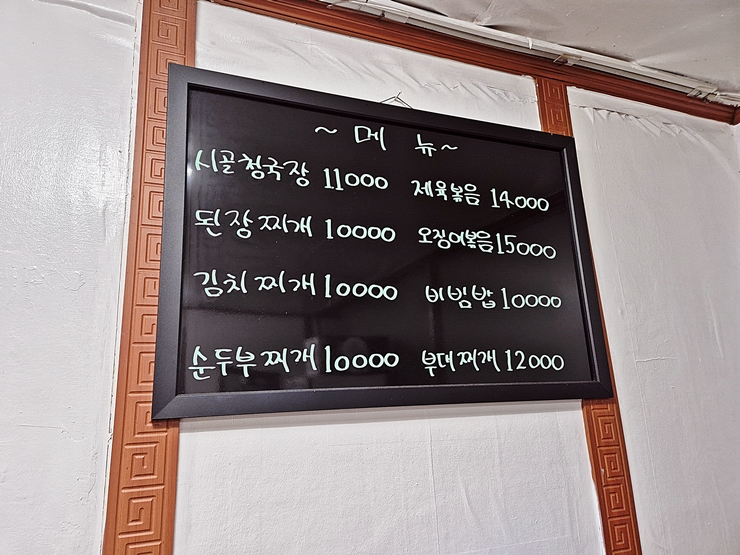 ~ 메 뉴 ~
시골청국장 11000 제육볶음 14000
된장찌개 10000 오징어볶음 15000
김치찌개 10000 비빔밥 10000
순두부찌개 10000 부대찌개 12000